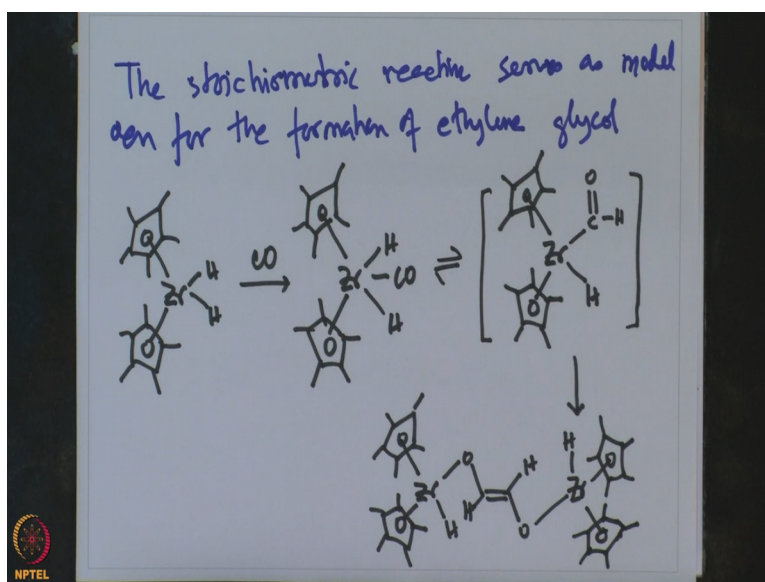 The stoichiometric reaction serves as model
rxn for the formation of ethylene glycol
Zr H H
CO
Zr H CO H
Zr C O H H
Zr O H H H O Zr H
NPTEL